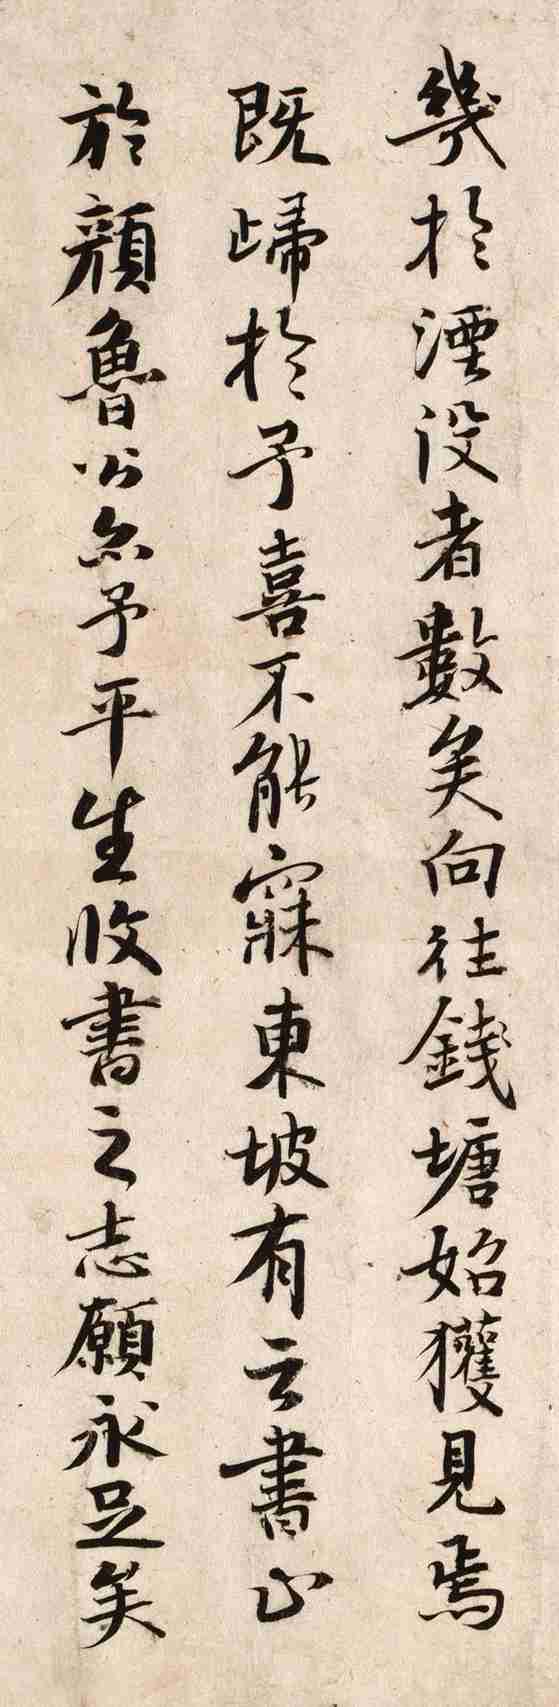 幾於湮没者數矣向往錢塘始獲見焉
既歸於予喜不能寐東坡有云書止
於顔魯公亦予平生收書之志願永足矣